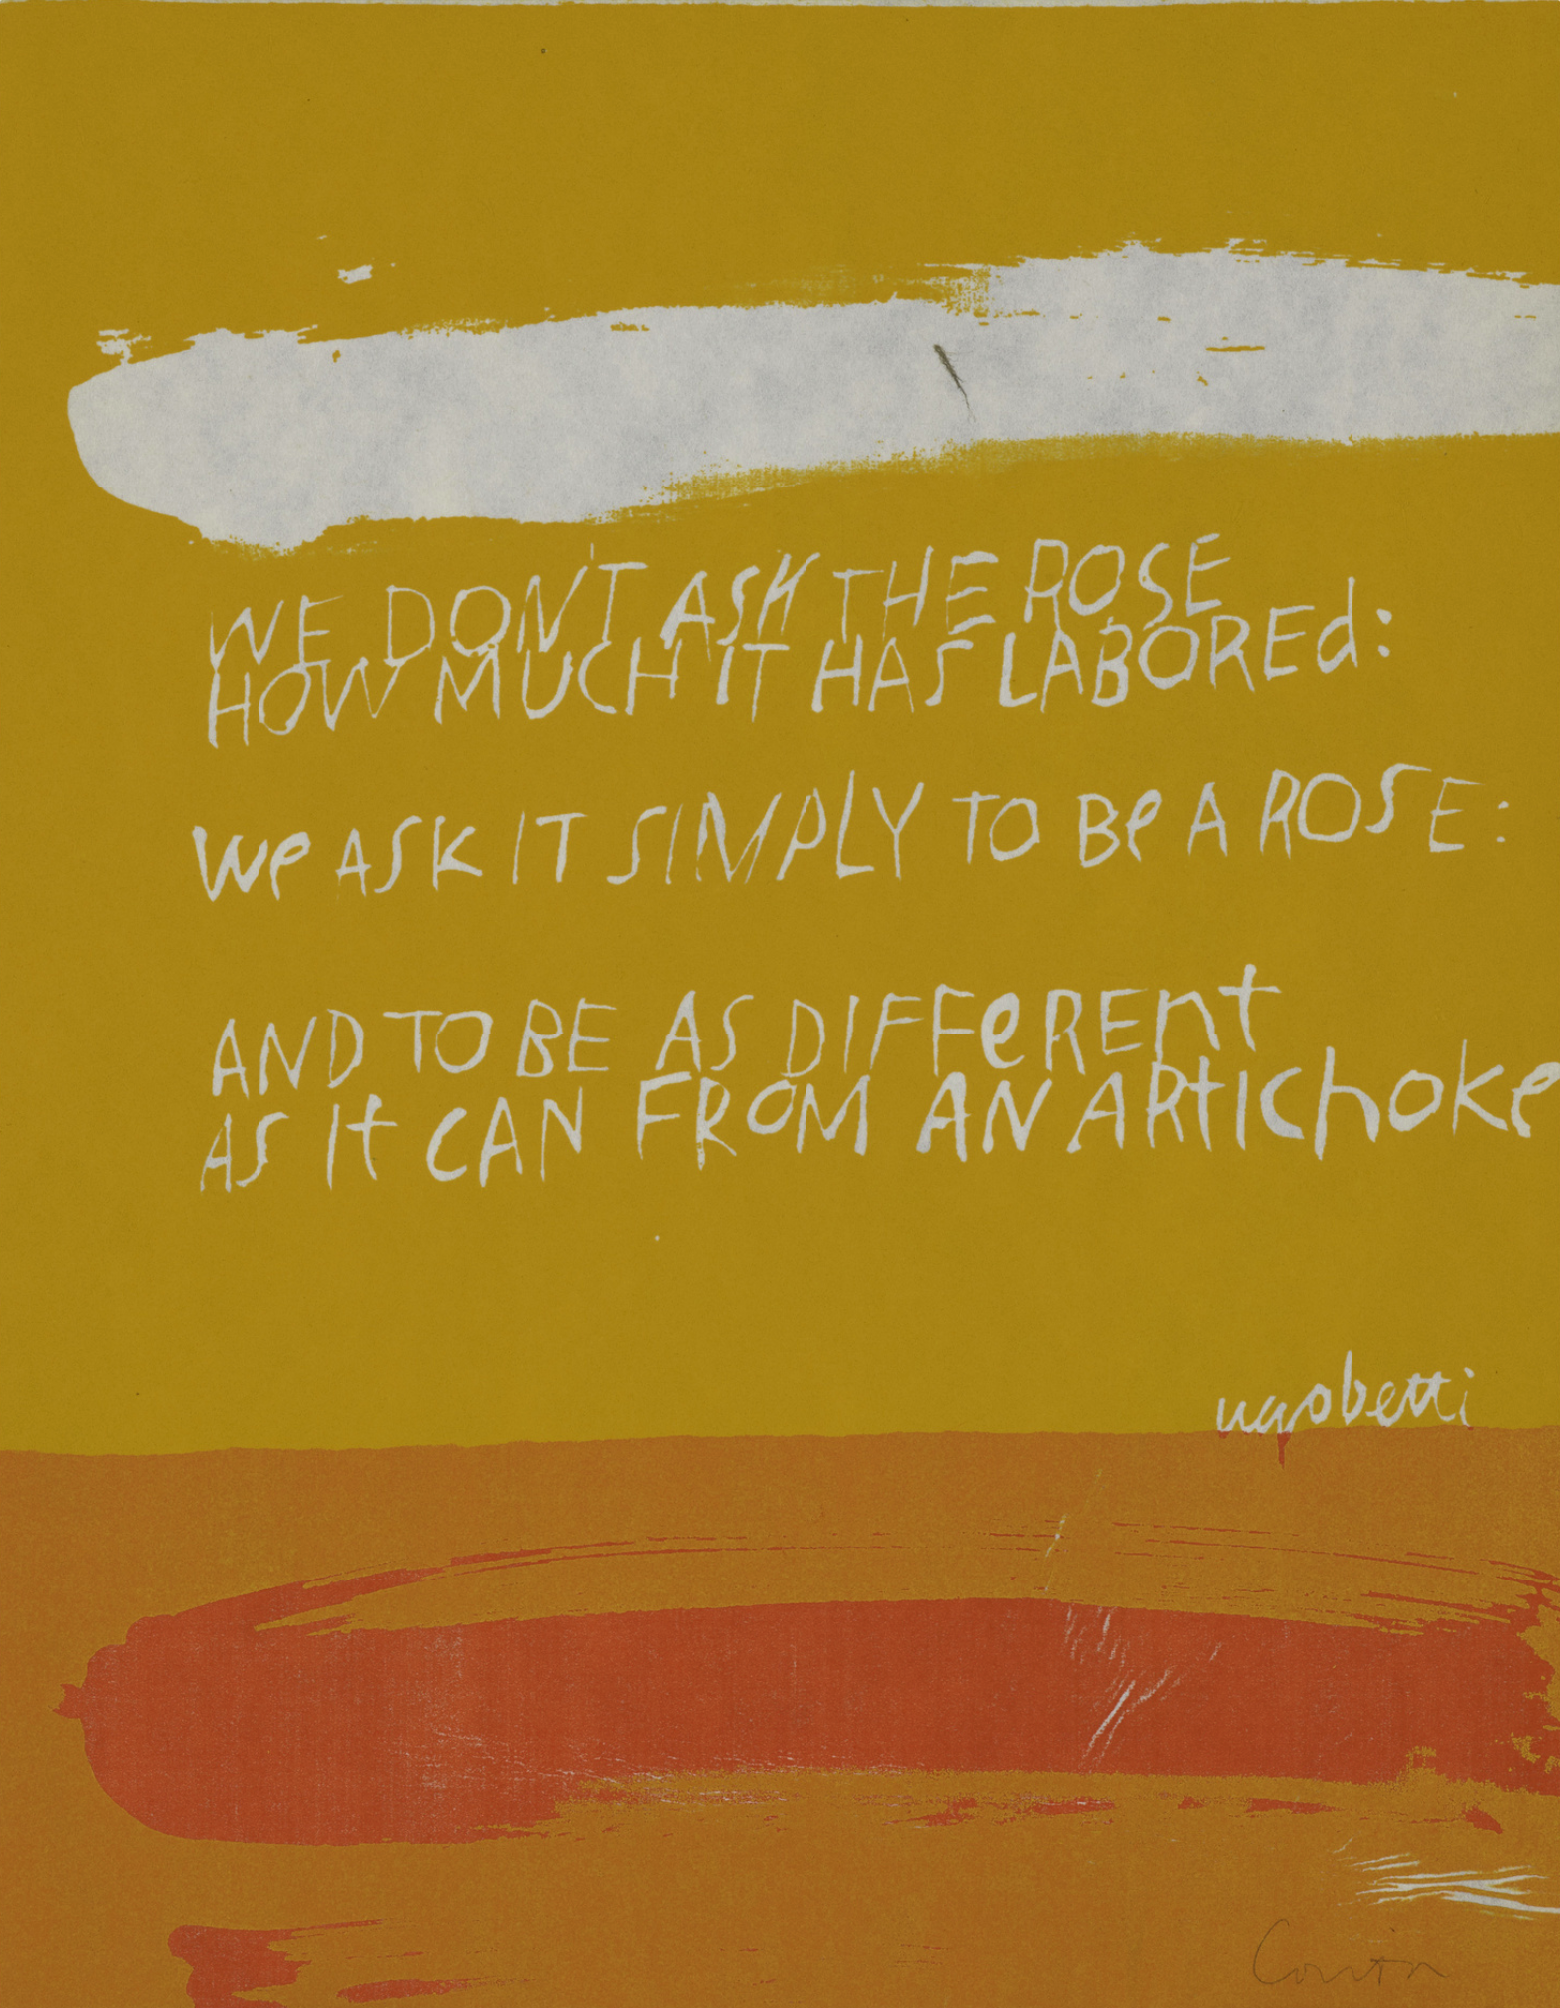 WE DON'T ASK THE ROSE
HOW MUCH IT HAS LABOREd:
We ASK IT SIMPLY TO Be A ROSE:
AND TO BE AS DIFFeREnt
AS It CAN FROM AN ARtIChoke
ugo betti
Corita